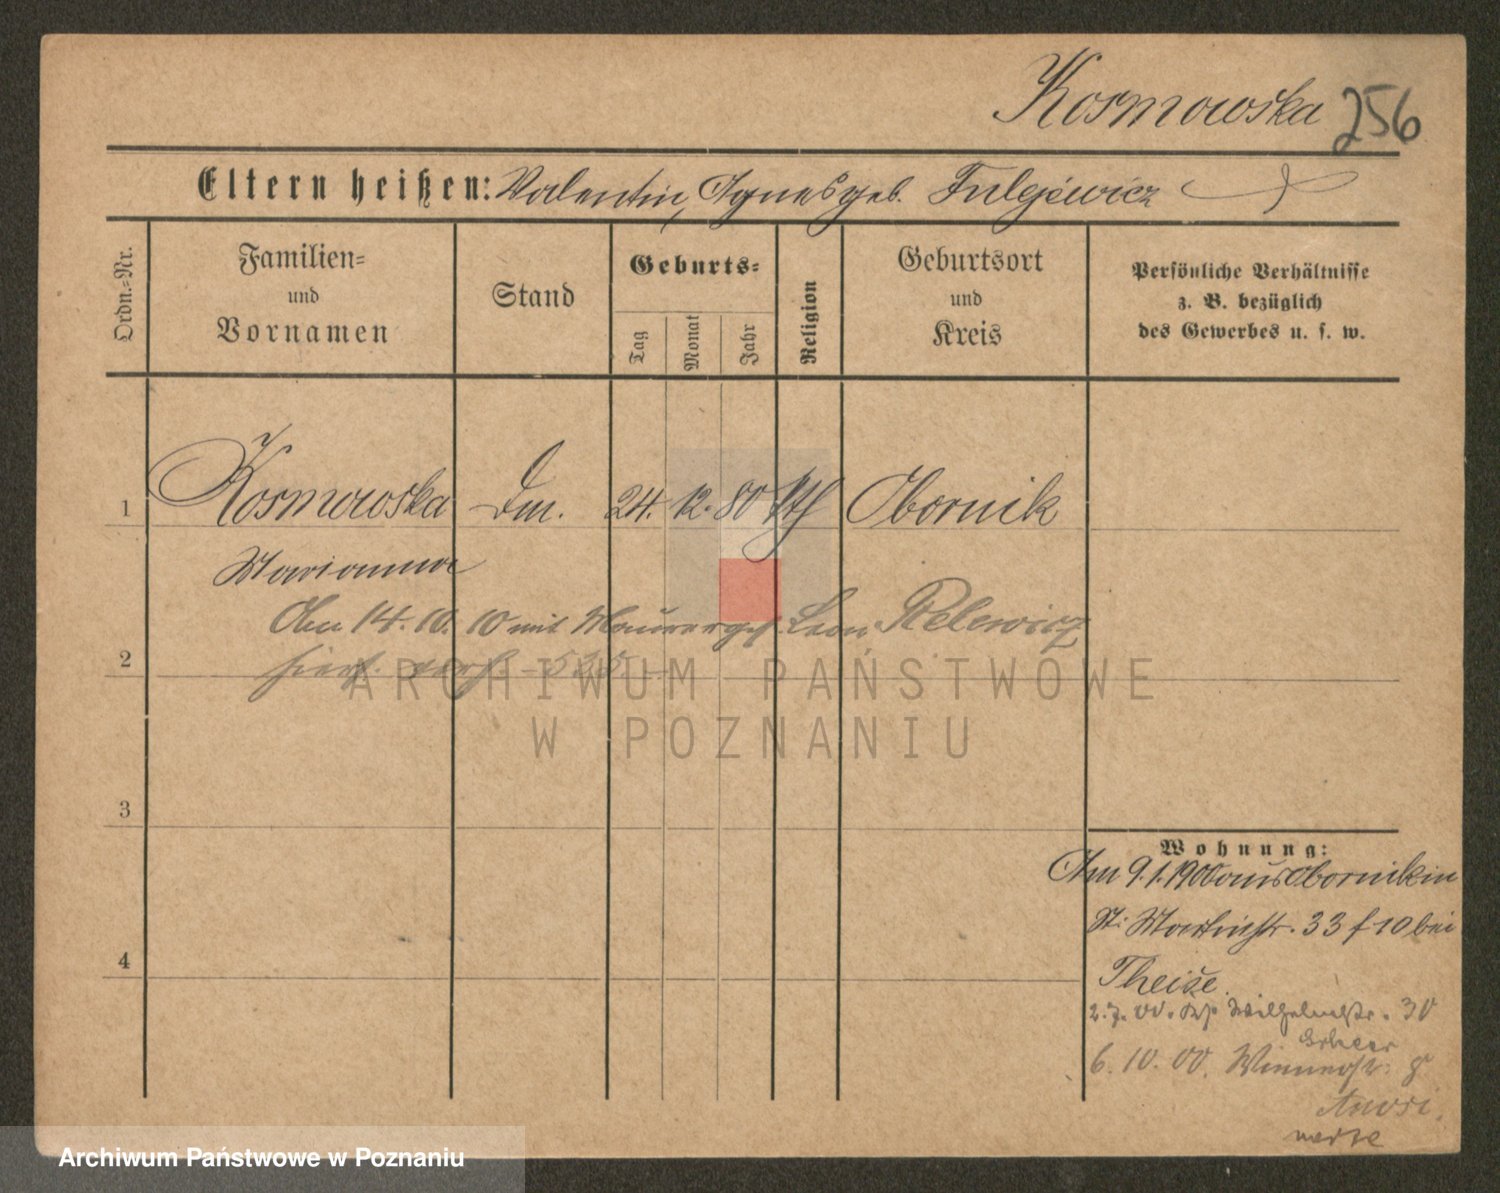 Kosmowska 256
Eltern heißen: Valentin, Agnes geb. Fulgiewicz
Ordn.-Nr.
Familien-
und
Vornamen
Stand
Geburts-
Tag
Monat
Jahr
Religion
Geburtsort
und
Kreis
Persönliche Verhältnisse
z. B. bezüglich
des Gewerbes u. s. w.
1 Kosmowska Dm. 24. 12. 80 kth Obornik
Marianna
Am 14. 10. 10 mit Maurerges. Leon Relewicz
2 hier verh. 535.
ARCHIWUM PAŃSTWOWE
W POZNANIU
3
Wohnung:
Am 9.1.1900 aus Obornik in
St. Martinstr. 33 f 10 bei
4
Theise.
2. 7. 00. Wilhelmstr. 30
6. 10. 00. 8
Archiwum Państwowe w Poznaniu